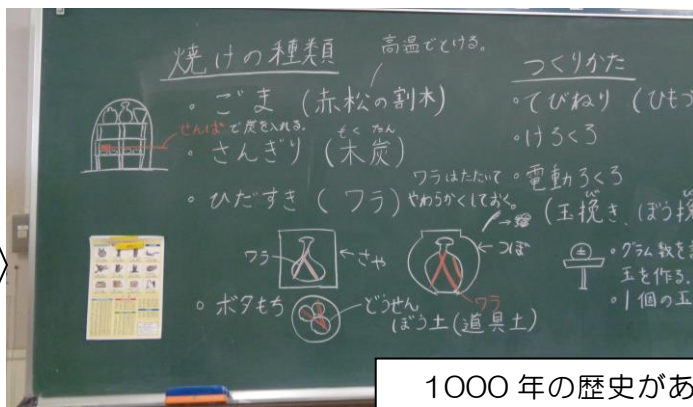 焼けの種類
高温でとける。
・ごま (赤松の割木)
せんばで炭を入れる。
・さんぎり (木炭)
もくたん
・ひだすき (ワラ)
ワラはたたいて
やわらかくしておく。
ワラ
←さや
←つぼ
ワラ
・ボタもち
どうせん
ぼう土(道具土)
つくりかた
・てびねり (ひもづ
・けろくろ
・電動ろくろ
(玉挽き、ぼう挽
び
・グラム数を
玉を作る。
・1個の玉
土
1000年の歴史があ